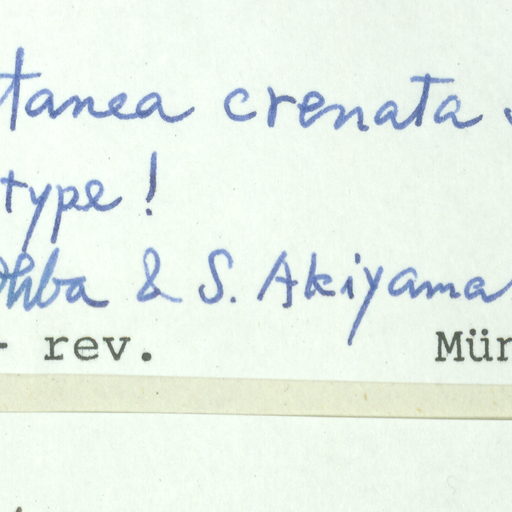 tanea crenata
type !
Ohba & S. Akiyama
rev. Mün